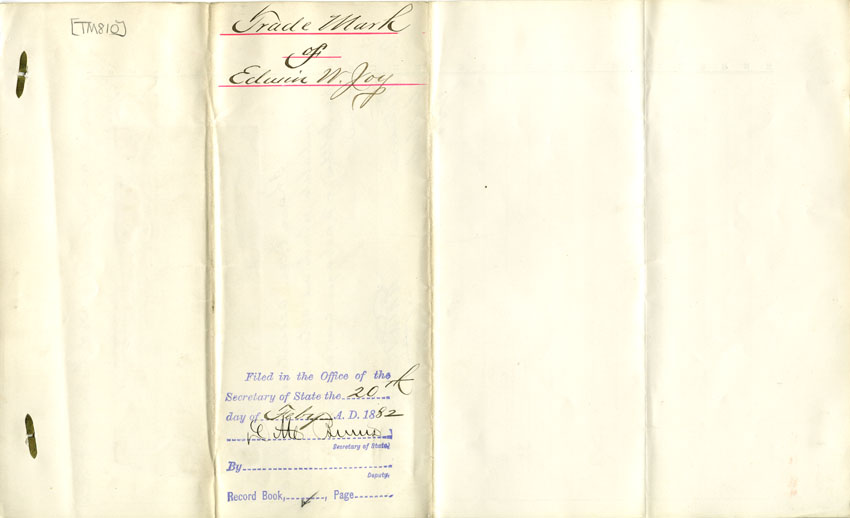 [TM810]
Trade Mark
of
Edwin W. Joy
Filed in the Office of the
Secretary of State the 20th
day of Feby A. D. 1882
Secretary of State
By
Deputy.
Record Book, , Page